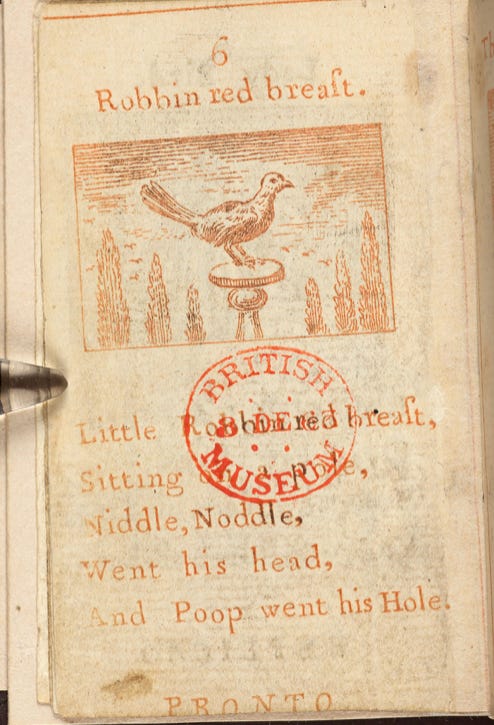 6
Robbin red breaſt.
Little Robbin red breaſt,
Sitting on a pole,
Niddle, Noddle,
Went his head,
And Poop went his Hole.
PRONTO
BRITISH
8 DE
MUSEUM